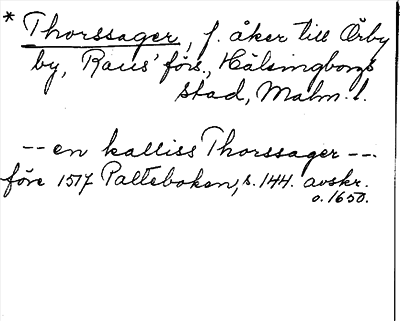 * Thorssager, f. åker till Örby
by, Raus' förs., Hälsingborgs
stad, Malm. l.
-- en kalliss Thorssager ---
före 1517 Palteboken, s. 144. avskr.
o. 1650.